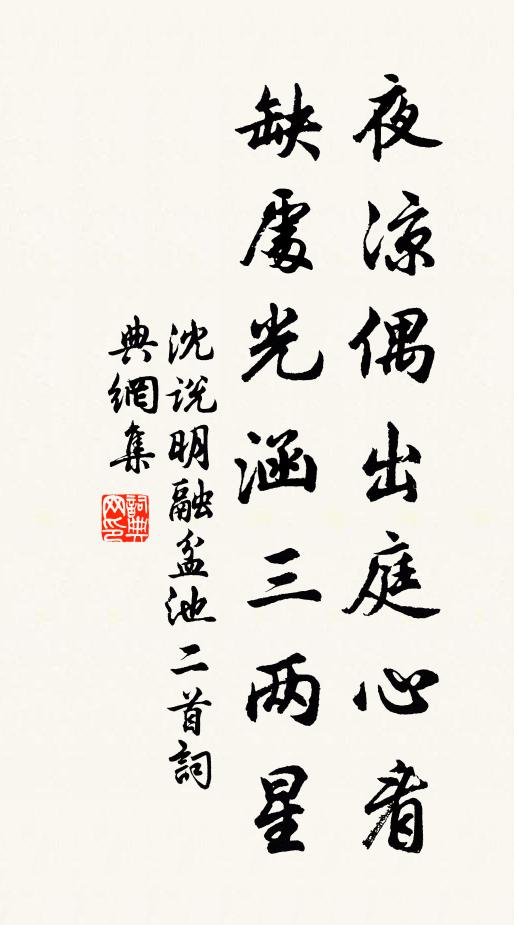 夜涼偶出庭心看
缺處光涵三两星
沈說明融盆池二首詞
典網集
詞典
网印